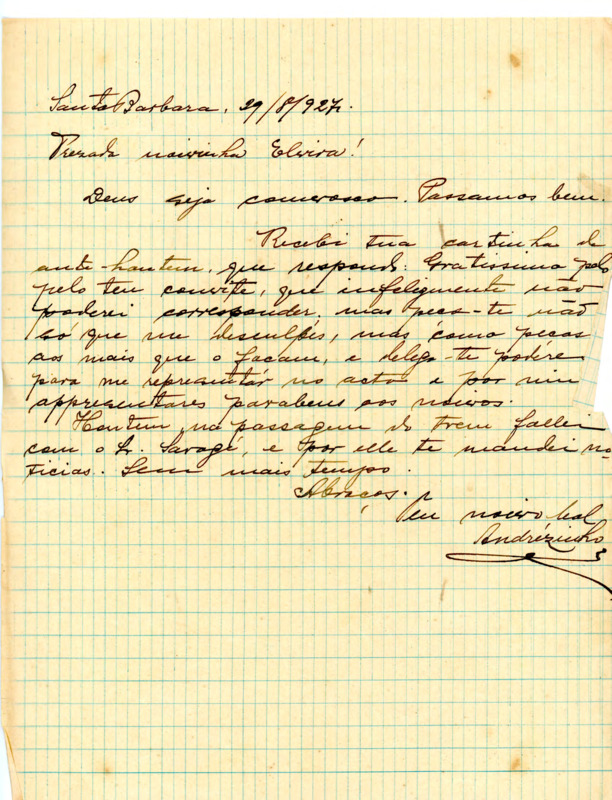 Santa Barbara, 29/8/927.
Prezada noivinha Elvira!
Deus seja comvosco. Passamos bem.
Recebi tua cartinha de
ante-hontem, que respondo. Gratissimo pelo
pelo teu convite, que infelizmente não
poderei corresponder, mas peço-te não
só que me desculpes, mas como peças
aos mais que o façam, e delego-te podêre
para me representár no acto e por mim
appresentares parabens aos noivos.
Hontem na passagem do trem fallei
com o Sr. e por elle te mandei no-
ticias. Sem mais tempo.
Abraços.
Teu noivo leal
Andrézinho